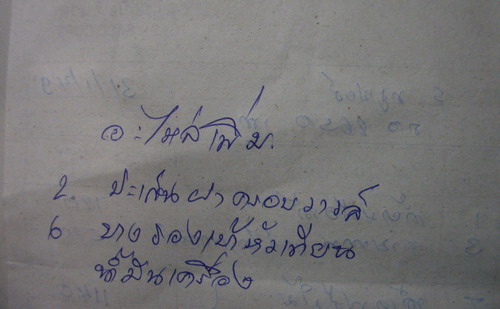 อะไหล่เพิ่ม
2 ปะเก็นฝาครอบวาวล์
6 ยางรองเบ้าหัวเทียน
น้ำมันเครื่อง